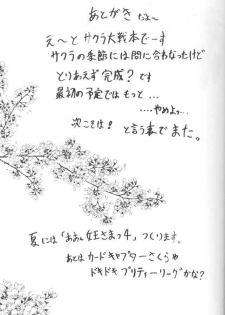 あとがき だよ〜
え〜と サクラ大戦本でーす
サクラの季節には間に合わなかったけど
とりあえず完成?です
最初の予定では もっと…
....やめよっ、
次こそは! と言う事でまた。
夏には「ああん女王さまっ4」つくります。
あとは カードキャプターさくらや
ドキドキ プリティーリーグかな?